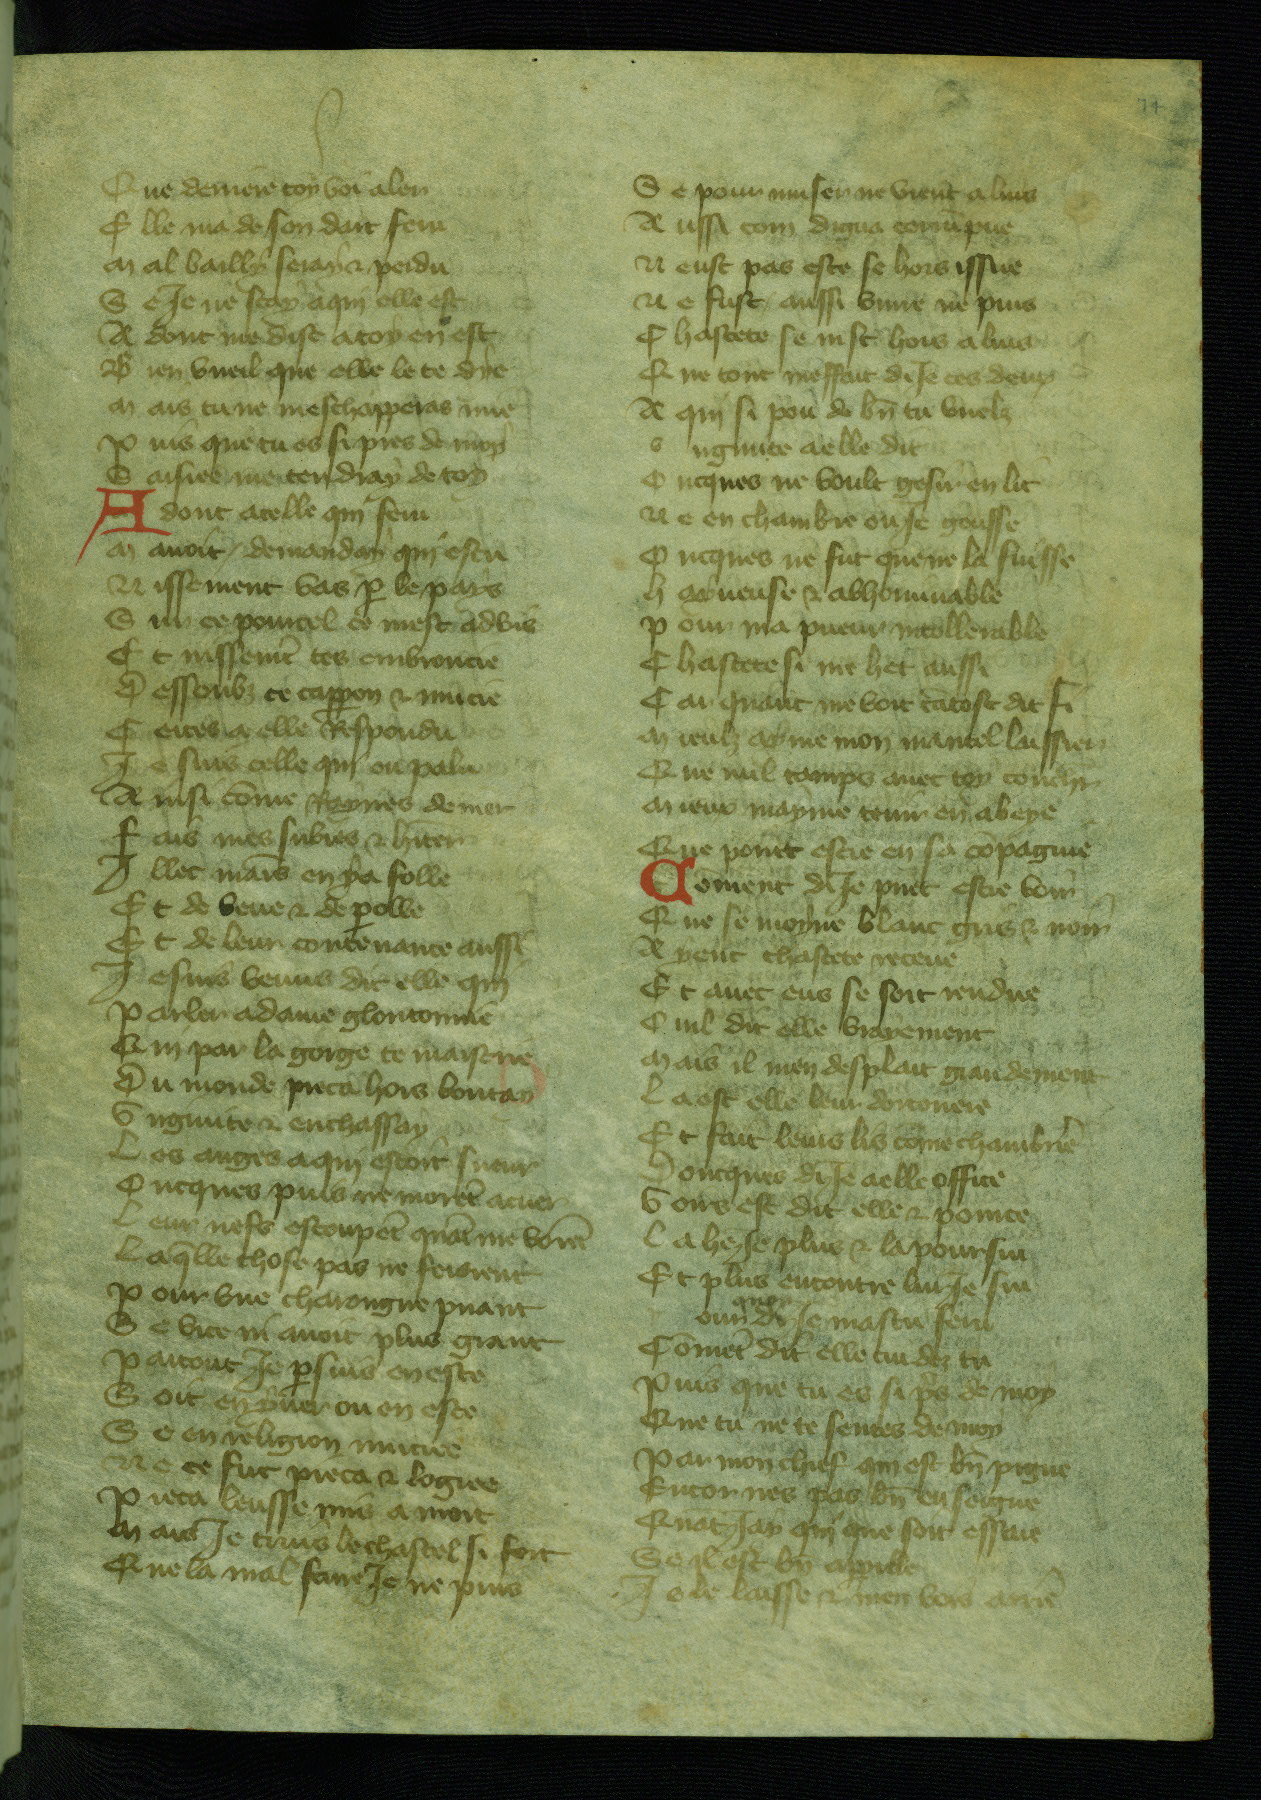 74
Que derriere toy voi aler
Elle ma de son dart feru
Mal bailly seray & perdu
Se Je ne scay a qui elle est
Adont me dist a toy en est
Bien vueil que elle le te die
Mais tu ne meschapperas mie
Puis que tu es si pres de moy
Saisiee me tendray de toy
Adont a celle qui feru
Mavoit demanday qui es tu
Nissement vas p le pays
Sur ce pourcel ce mest advis
Et nissemt tes embronchie
Dessoubz ce cappon & mucie
Certes a elle Respondu
Je suis celle qui ou palu
Ainsi cõme Raynes demer
Fais mes subies & hiter
Illec mains en y a folle
Et de veue & de polle
Et de leur contenance aussi
Je suis venus dit elle qui
Parler a dame gloutonnie
Qui par la gorge te maistrie
Du monde pieca hors boutay
Virginite & enchassay
Les anges a qui estoit sueur
Oncques puis ne morẽt a cuer
Leur nefs estoupẽt quãt me voiẽt
Laq̃lle chose pas ne feroient
Pour vne charongne puant
Se vice ni auoit plus grant
Partout Je psuis en este
Soit en yuer ou en este
Se en religion muciee
Ne ce fut pieca & logiee
Pieca leusse mis a mort
Mais Je truis le chastel si fort
Que la mal faire Je ne puis
Se pour muser ne vient a luis
Aussi com digna corrũpue
Neust pas este se hors issue
Ne fust aussi vnue ne puis
Chastete se nist hors a luis
Que tont meffait di Je ces deux
A qui si pou de bñ tu vuelz
Virginite a elle dit
Oncques ne voult gesir en lit
Ne en chambre ou Je geusse
Oncques ne fut que ne la fuisse
hayneuse & abhominable
Pour ma pueur intollerable
Chastete si me het aussi
Car quant me voit tãtost dit fi
Mieulz ayme mon mantel laissier
Que nul tamps auec toy couchr
Mieux mayme tenir en abeye
Que pouret estre en sa cõpagnie
Coment di Je puet estre voir
Que se moyne blanc gris & noir
Ayent chastete receue
Et auec eus se soit rendue
Ouil dit elle vrayement
Mais il men desplait grandement
La est elle leur dortouere
Et fait leurs lis cõme chambriere
Doncques di Je a elle office
Voirs est dit elle & pour ce
La he Je plus & la poursui
Et plus encontre lui Je sui
our quoy di Je mas tu feru
Cõmẽt dit elle cui dez tu
Puis que tu es si ps de moy
Que tu ne te sentes de moy
Par mon chief qui est bñ pigne
Encor nes pas bñ enseigne
Quãt Jay qui que soit essaie
Se ql est bñ
Je le laisse & men vois arrie